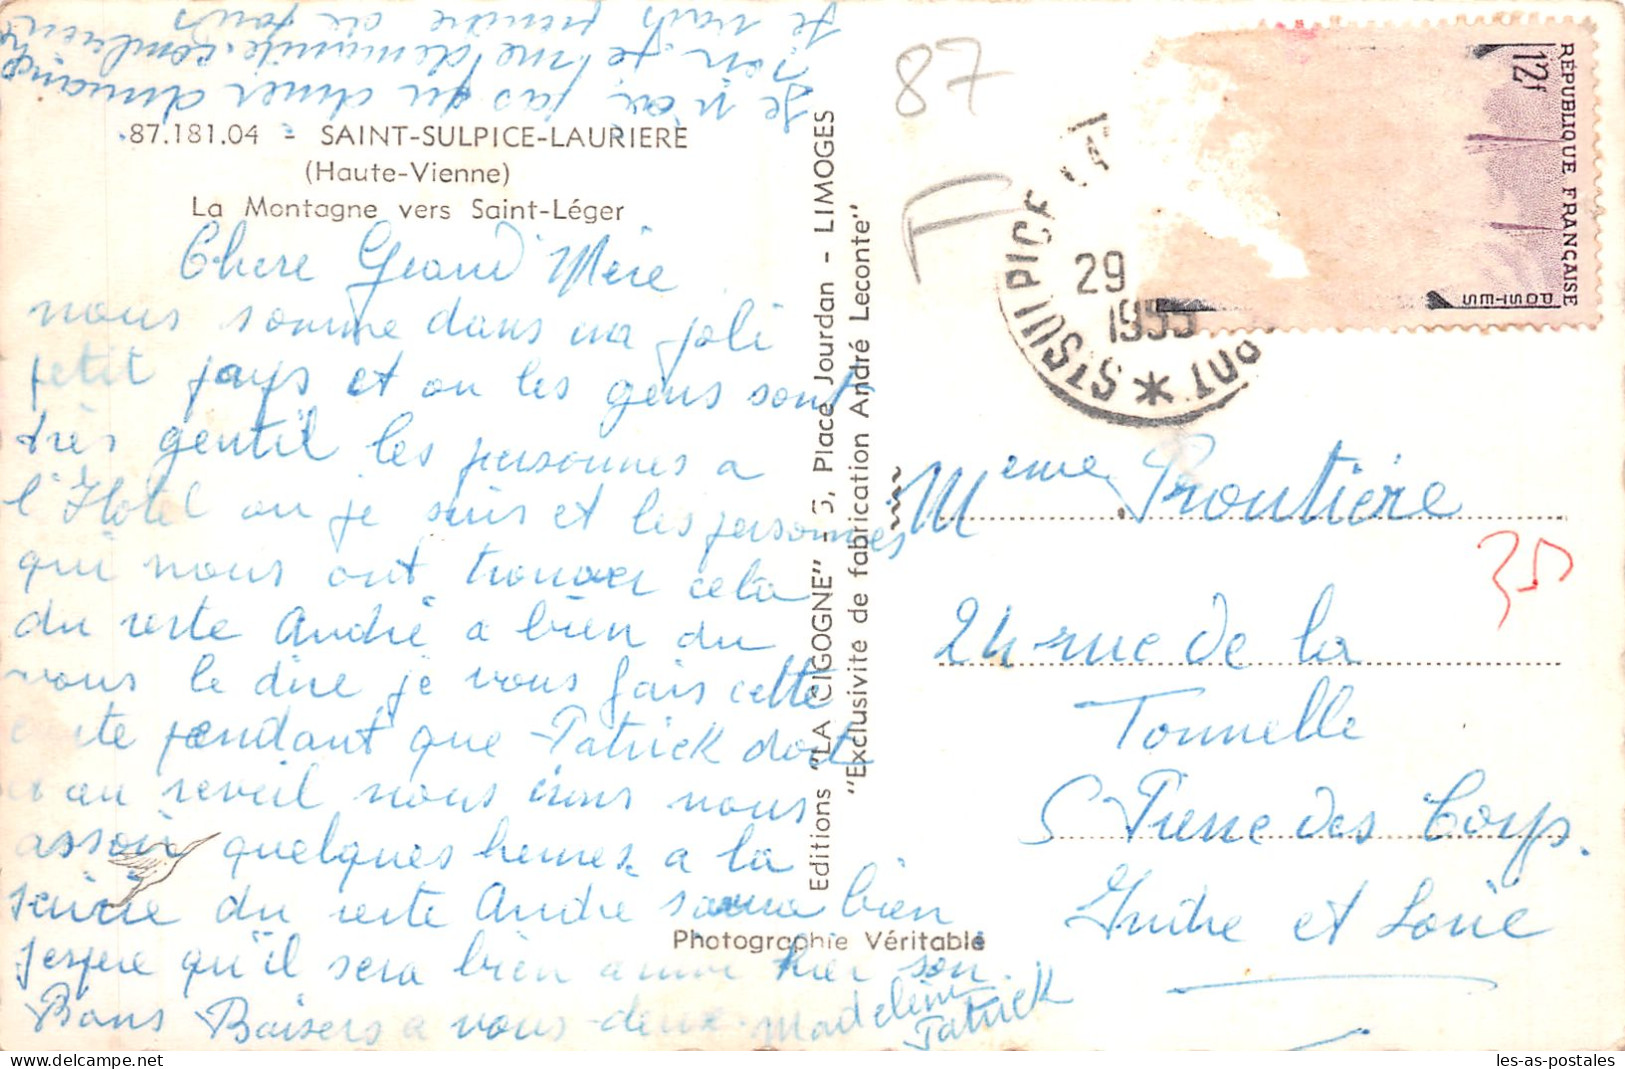 87.181.04 - SAINT-SULPICE-LAURIERE
(Haute-Vienne)
La Montagne vers Saint-Léger
Chere Grand Mère
nous somme dans un joli
petit pays et ou les gens sont
très gentil les personnes a
l'Hotel ou je suis et les personnes
qui nous ont trouver cela
du reste André a bien du
vous le dire je vous fais cette
carte pendant que Patrick dort
au reveil nous irons nous
assoir quelques heures a la
du reste André sera bien
jespere qu'il sera bien hier soir.
Bons Baisers a vous deux. Madeleine
Patrick
Je n'ai pas eu diner dimanche
soir je me demande combien
Je vais prendre au jours
Editions "LA CIGOGNE" - 5, Place Jourdan - LIMOGES
"Exclusivite de fabrication André Leconte"
Photographie Véritable
87
T
ST SULPICE LA
29
1955
12f
REPUBLIQUE FRANÇAISE
POSTES
Meme Proutière
35
24 rue de la
Tonnelle
S Pierre des Corps.
Indre et Loire
les-as-postales
delcampe.net